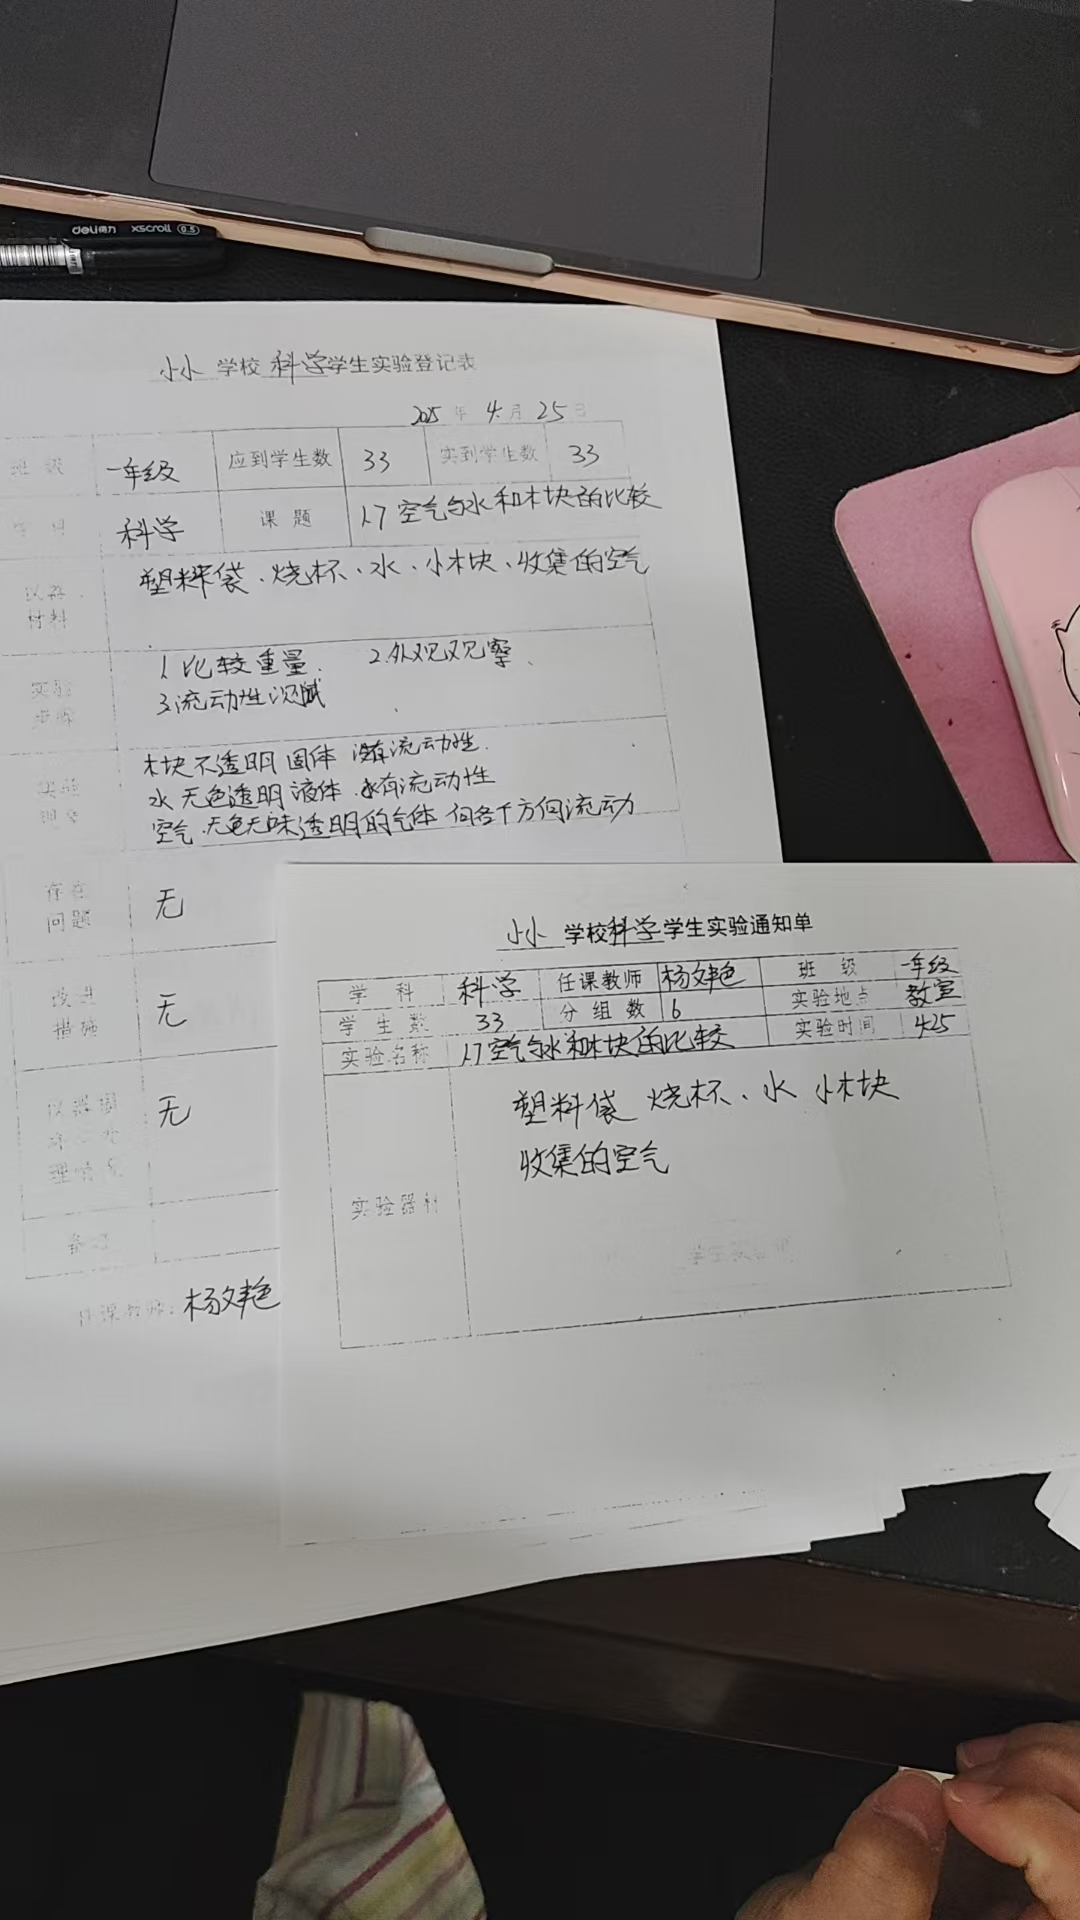 deli得力 xscroll 0.5
小小 学校 科学 学生实验登记表
2025年 4月 25日
班级 一年级 应到学生数 33 实到学生数 33
学科 科学 课题 1.7 空气与水和木块的比较
仪器材料 塑料袋、烧杯、水、小木块、收集的空气
实验步骤 1.比较重量. 2.外观观察、
3.流动性测试
木块不透明固体 没有流动性.
实验现象 水 无色透明液体 水有流动性
空气.无色无味透明的气体 向各个方向流动
存在问题 无
改进措施 无
无
备注
任课教师:
小小 学校科学学生实验通知单
学科 科学 任课教师 班级 一年级
学生数 33 分组数 6 实验地点 教室
实验名称 1.7空气与水和木块的比较 实验时间 4.25
塑料袋 烧杯、水 小木块
收集的空气
实验器材